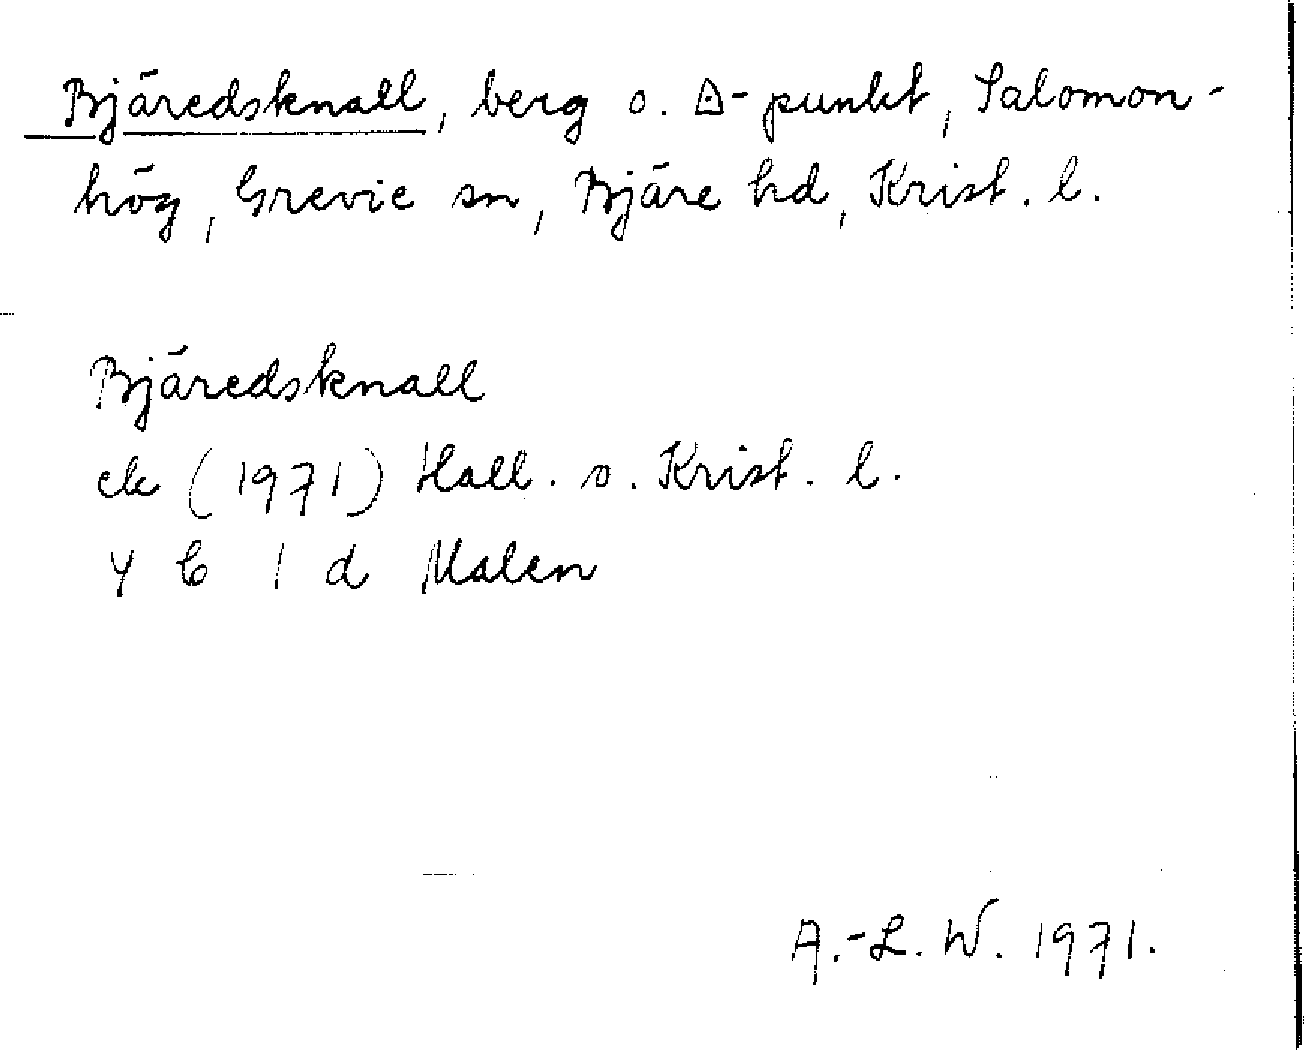 Bjäredsknall, berg o. △-punkt, Salomon-
hög, Grevie sn, Bjäre hd, Krist. l.
Bjäredsknall
ek (1971) Hall. o. Krist. l.
4 C 1 d Malen
A.-L. W. 1971.